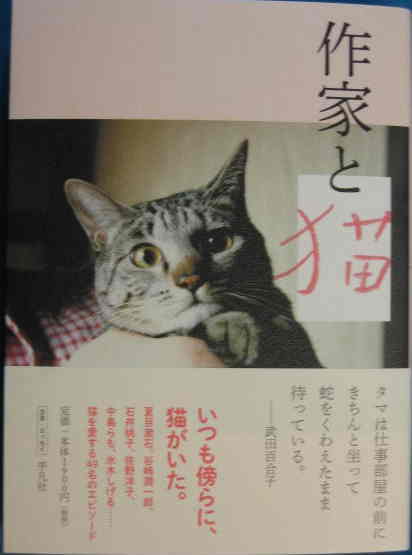 作家と
猫
タマは仕事部屋の前に
きちんと坐って
蛇をくわえたまま
待っている。
——武田百合子
いつも傍らに、
猫がいた。
夏目漱石、谷崎潤一郎、
石井桃子、佐野洋子、
中島らも、水木しげる……
猫を愛する49名のエピソード
定価=本体1900円（税別）
平凡社